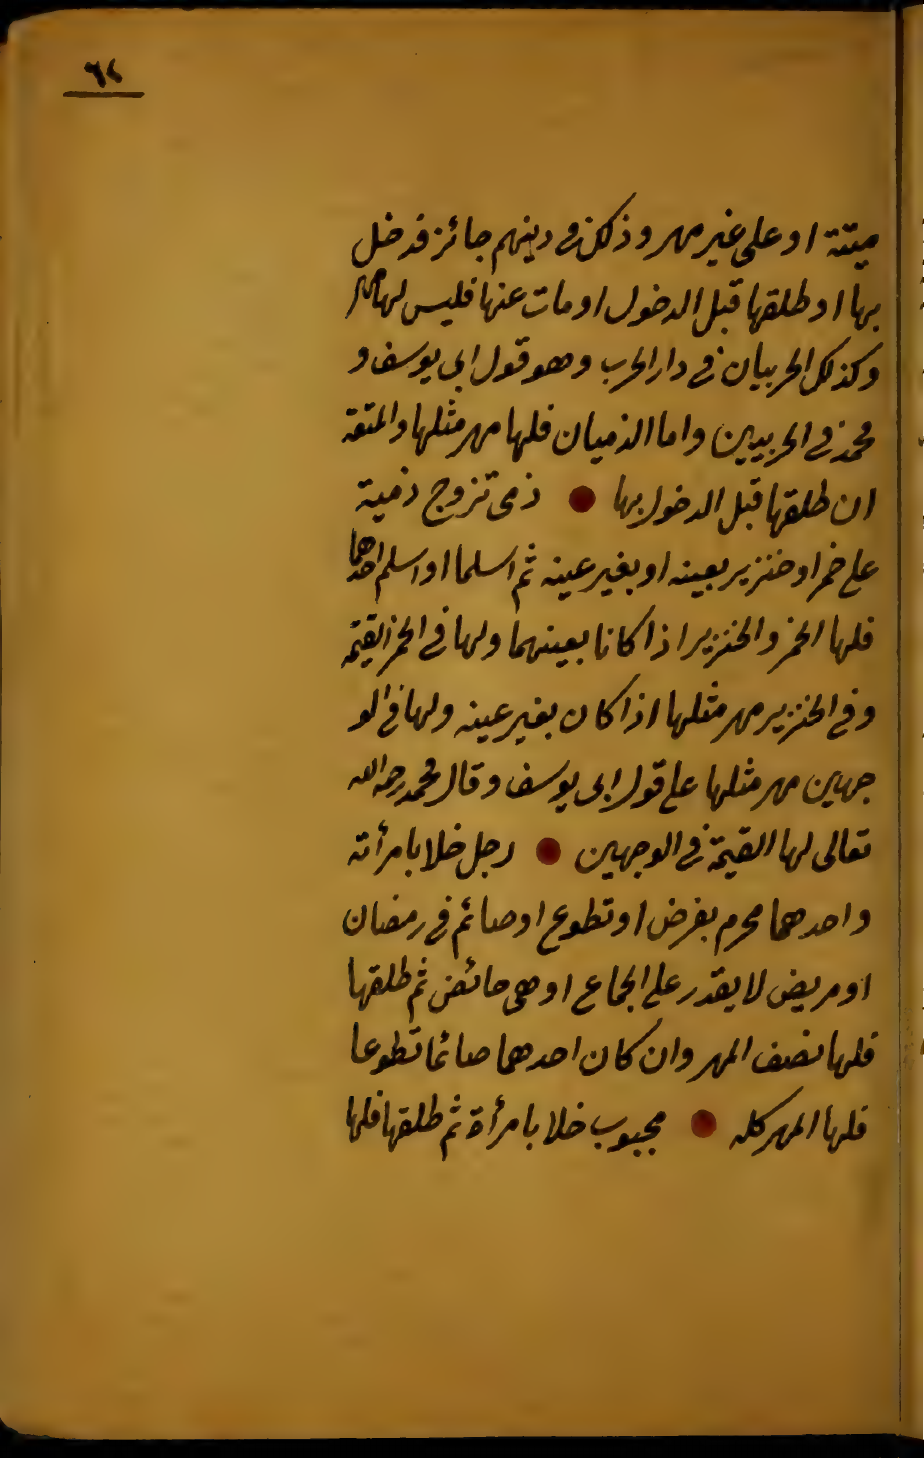 ٦٤
ميتة او على غير مهر وذلك في دينهم جائز فدخل
بها او طلقها قبل الدخول او مات عنها فليس لها مهر
وكذلك الحربيان في دار الحرب وهو قول ابي يوسف و
محمد في الحربيين واما الذميان فلها مهر مثلها والمتعة
ان طلقها قبل الدخول بها ● ذمى تزوج ذمية
على خمر او خنزير بعينه او بغير عينه ثم اسلما او اسلم احدهما
فلها الخمر والخنزير اذا كانا بعينهما ولها في الخمر القيمة
وفي الخنزير مهر مثلها اذا كان بغير عينه ولها في الو
جهين مهر مثلها على قول ابى يوسف وقال محمد رحمه الله
تعالى لها القيمة في الوجهين ● رجل خلا بامرأته
واحدهما محرم بفرض او تطوع او صائم في رمضان
او مريض لا يقدر على الجماع او هى حائض ثم طلقها
فلها نصف المهر وان كان احدهما صائما تطوعا
فلها المهر كله ● مجبوب خلا بامرأة ثم طلقها فلها